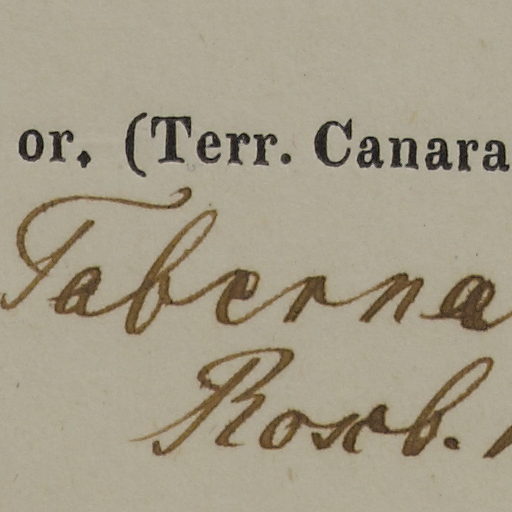 or. (Terr. Canara
Tabernæ
Roxb.